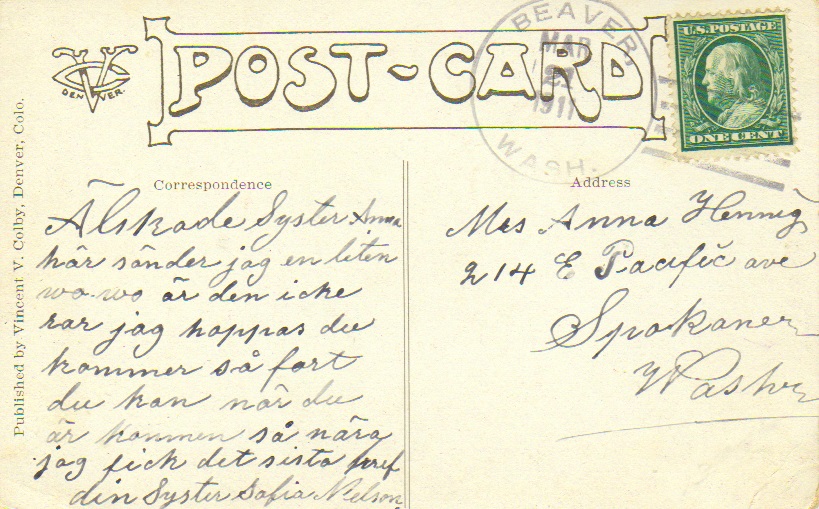 POST-CARD
DEN VER.
BEAVER,
MAR
1911
WASH.
U.S. POSTAGE
ONE CENT
Published by Vincent V. Colby, Denver, Colo.
Correspondence
Älskade Syster Anna
här sänder jag en liten
wo-wo är den icke
rar jag hoppas du
kommer så fort
du kan när du
är kommen så nära
jag fick det sista bref
din Syster Sofia Nelson
Address
Mrs Anna Hennig
214 E Pacific ave
Spokane
Wash